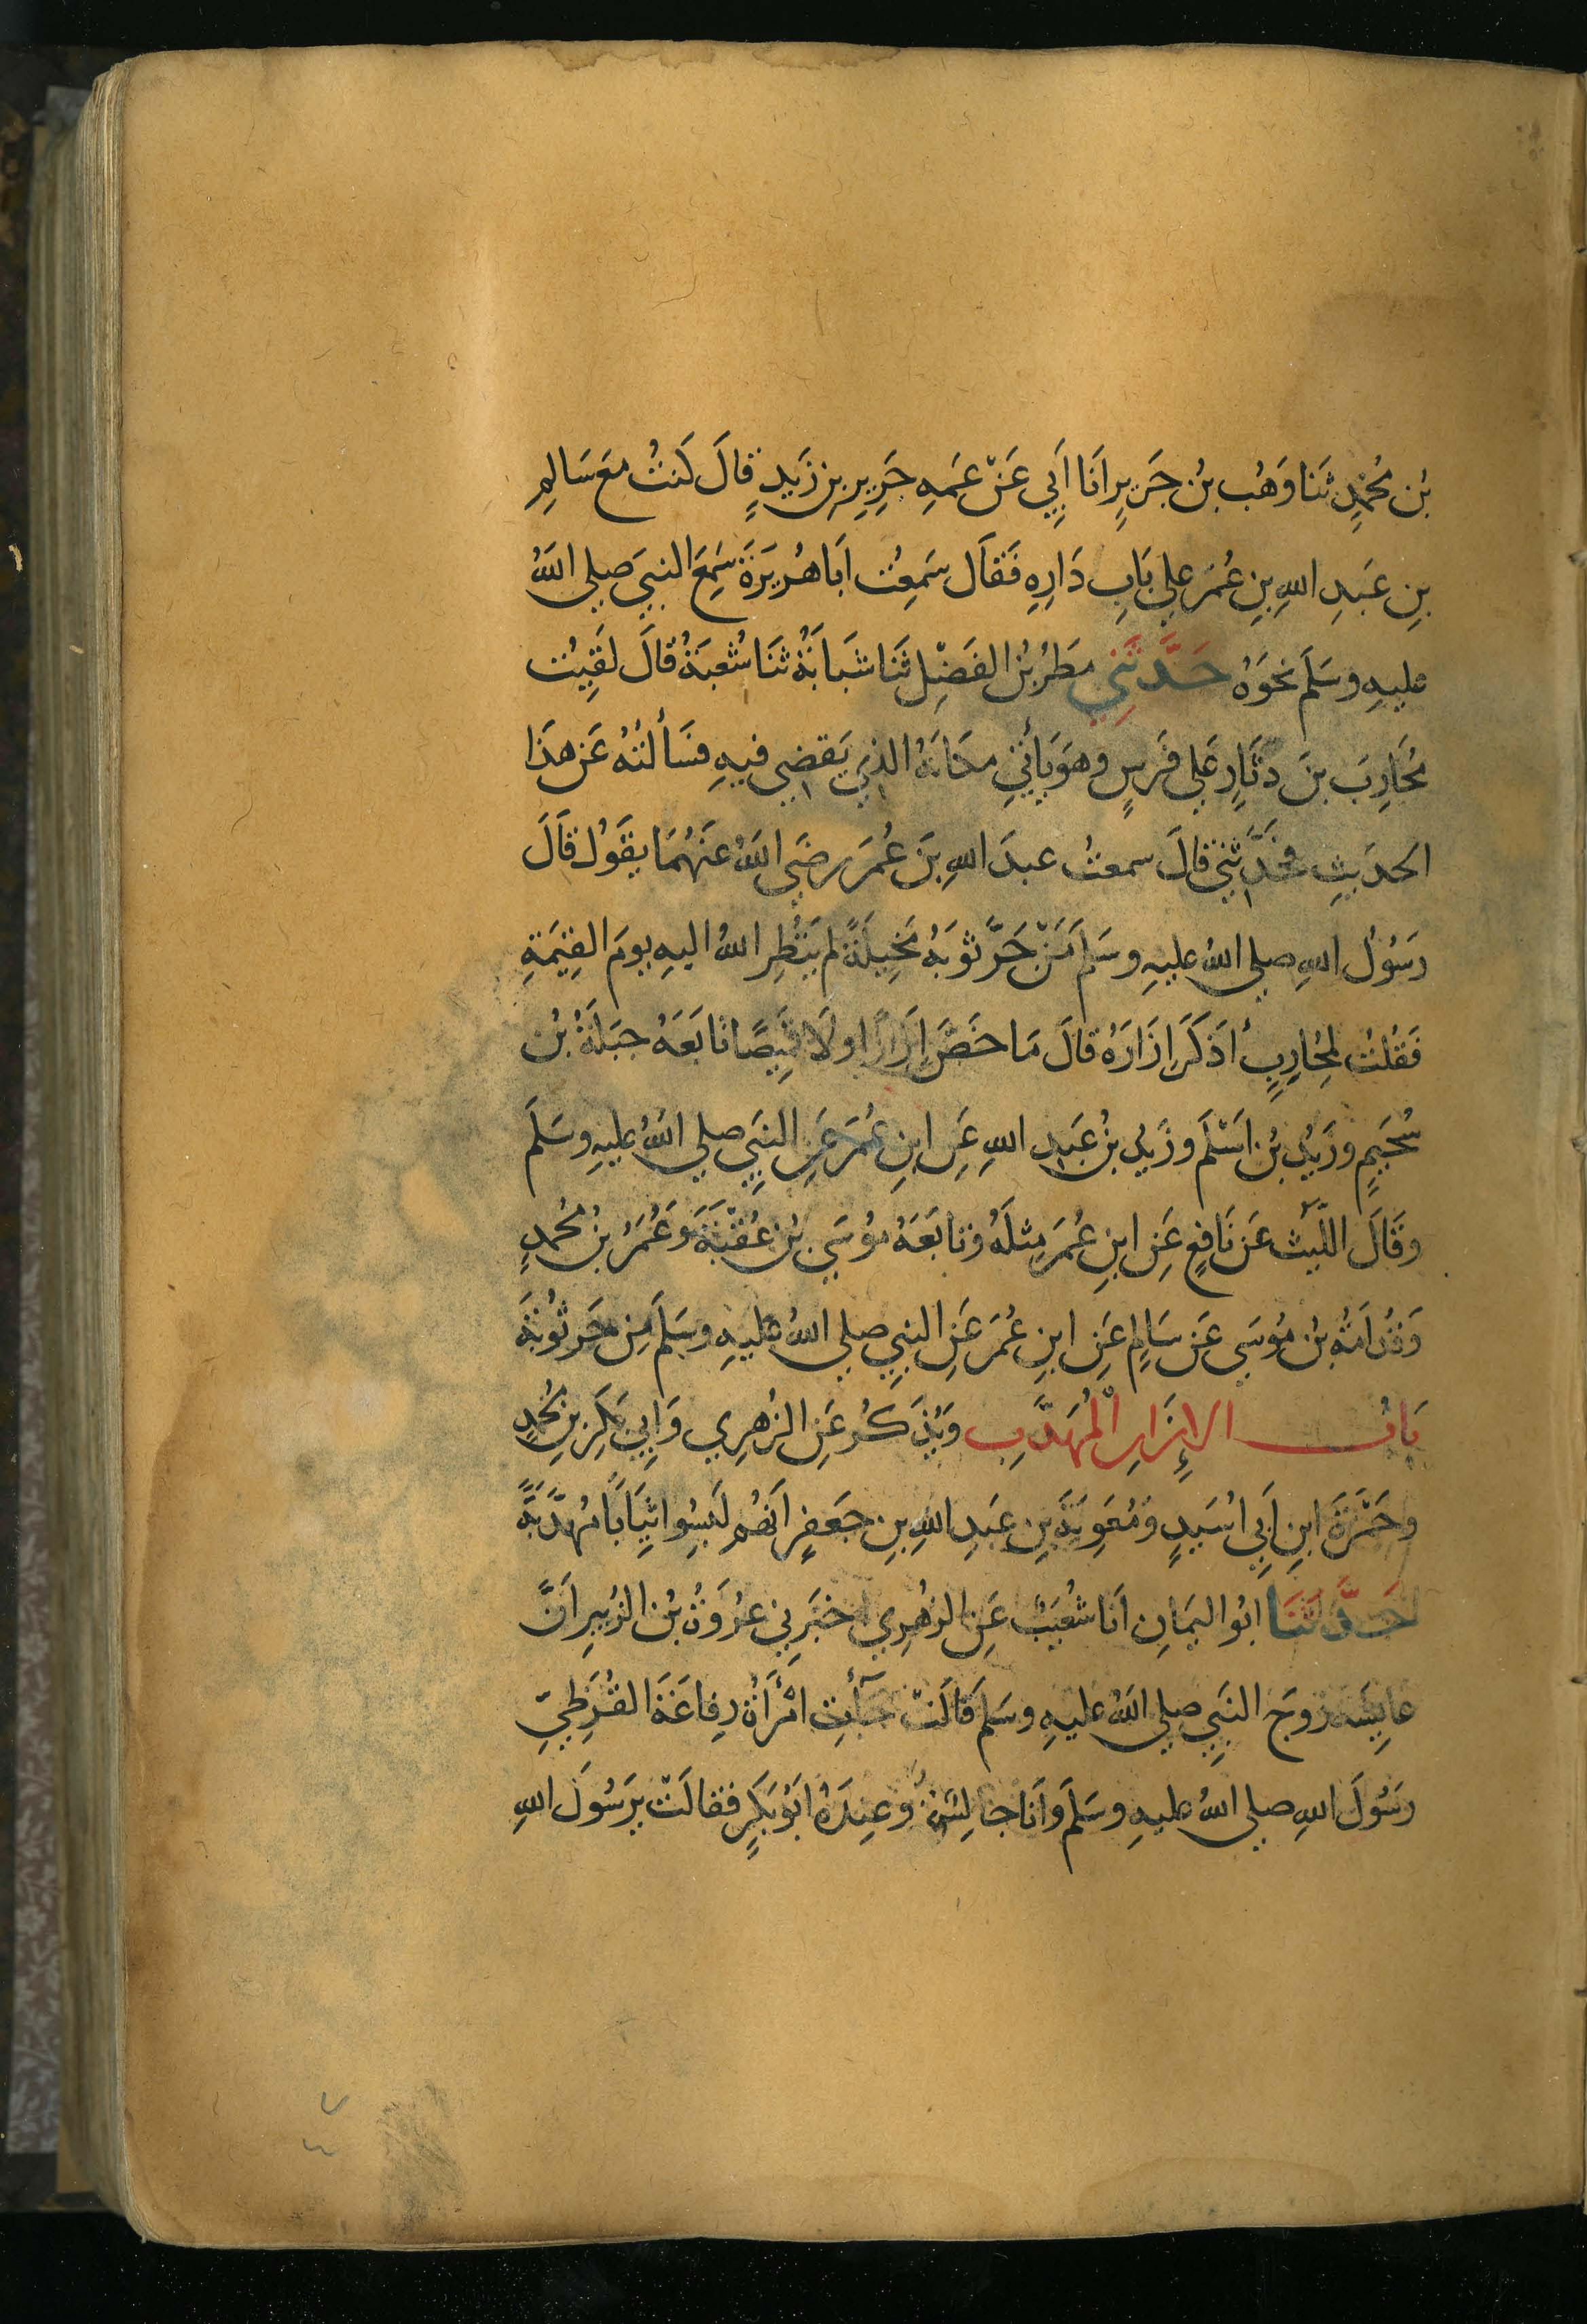 بْن مُحَمَّدٍ ثَنَا وَهْب بْن جَرِيرٍ اَنَا اَبِي عَنْ عَمِّهِ جَرِيرِ بْنِ زَيْدٍ قَالَ كُنْتُ مَعَ سَالِمِ
بنِ عَبدِ اللهِ بنِ عُمَرَ علي بَابِ دَارِهِ فَقَال سَمِعْت اَبَا هُرَيرَةَ سَمِعَ النبيَ صلي اللهُ
عليهِ وسَلَم نحوَهُ حَدَّثَنِي مَطَرُ بْن الفَضْلِ ثَنَا شَبَابَةُ ثَنَا شُعبَةُ قالَ لَقِيْت
مُحَارِبَ بنَ دثَارٍ عَلي فَرَسٍ وهوَ يَأْتِي مكانَهُ الذِي يَقضِي فيهِ فسَألتُهُ عَن هذَا
الحديثِ فحَدَّثني قالَ سمعتُ عبدَ اللهِ بنَ عُمَرَ رضيَ اللهُ عنهُمَا يقَول قَالَ
رَسُولُ اللهِ صلي اللهُ عليهِ وسَلم مَنْ جَرَّ ثوبَهُ مَخِيلَةً لم يَنْظُرِ اللهُ اليهِ يومَ القِيَمَةِ
فَقُلتُ لمُحَارِبٍ أَذَكَرَ إزَارَهُ قالَ مَا خَصَّ إزَارًا ولَا قَمِيصًا تَابَعَهُ جبَلَةُ بْن
سُحَيمٍ وزَيدُ بْن اَسْلَم وزَيدُ بْن عَبدِ اللهِ عَنِ ابنِ عُمَرَ عَنِ النبيِ صلي اللهُ عليهِ وسَلَم
وقَالَ اللَّيثُ عَن نَافعٍ عَنِ ابنِ عُمَرَ مِثلَهُ وتابَعَهُ مُوسَي بْن عُقْبَةَ وَعُمَرُ بْن مُحَمدٍ
وَقُدَامَةُ بْن مُوسَي عَن سَالمٍ عَنِ ابنِ عُمَرَ عَنِ النبيِ صلي اللهُ عليهِ وسَلم مَن جَر ثوبَهُ
بَابُ الإزَارِ الْمُهَدَّبِ وَيُذكَرُ عَنِ الزُهرِي وَاَبِي بَكرِ بنِ مُحَمدٍ
وحَمْزَةَ ابنِ اَبِي اُسَيدٍ وَمُعَوِيَةَ بنِ عَبدِ اللهِ بنِ جَعفَرٍ اَنهُم لَبِسُوا ثِيَابًا مُهَدَّبَةً
حَدَّثَنَا ابُو اليَمَانِ اَنَا شُعَيبٌ عَنِ الزهرِي اخبَرَنِي عرُوَةُ بْن الزُبيرِ اَنَّ
عايِشَةَ زَوجَ النبِي صلي اللهُ عليهِ وسَلم قَالَتْ جَآءَتِ امْرَأَةُ رِفاعَةَ القُرَظِيّ
رَسُولَ اللهِ صلي اللهُ عليهِ وسَلمَ وَاَنَا جَالِسَةٌ وَعِندَهُ اَبُو بَكرٍ فقالَتْ يرَسُولَ اللهِ